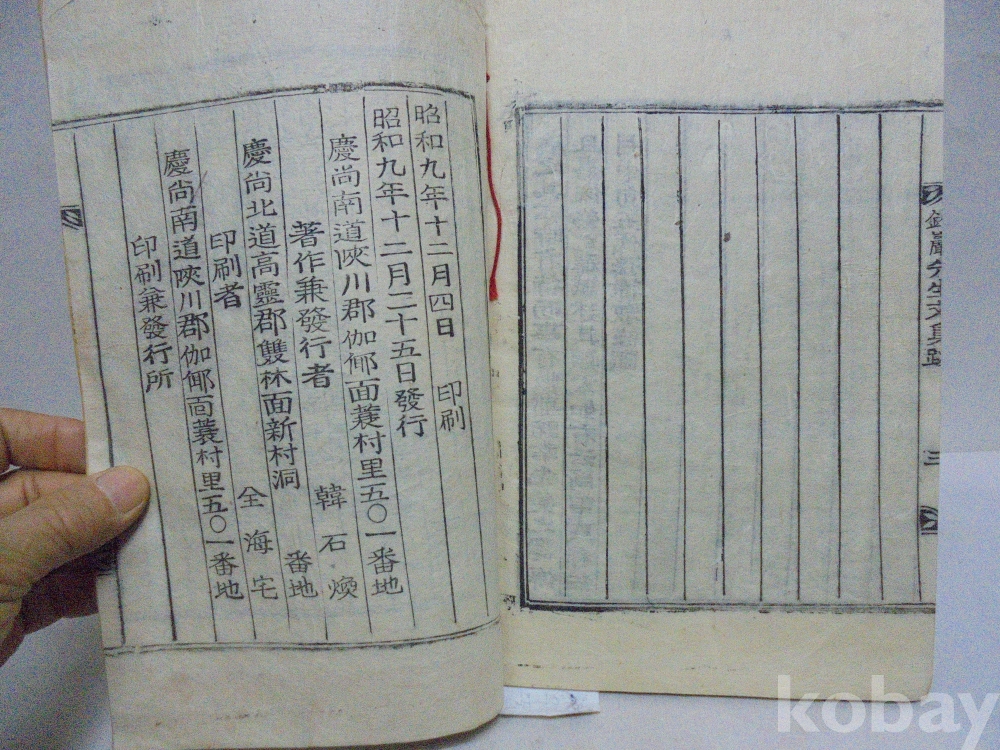 先生文集跋
三
昭和九年十二月四日 印刷
昭和九年十二月二十五日發行
慶尚南道陜川郡伽倻面蓑村里五〇一番地
著作兼發行者 韓石煥
慶尚北道高靈郡雙林面新村洞 番地
印刷者 全海宅
慶尚南道陜川郡伽倻面蓑村里五〇一番地
印刷兼發行所
kobay